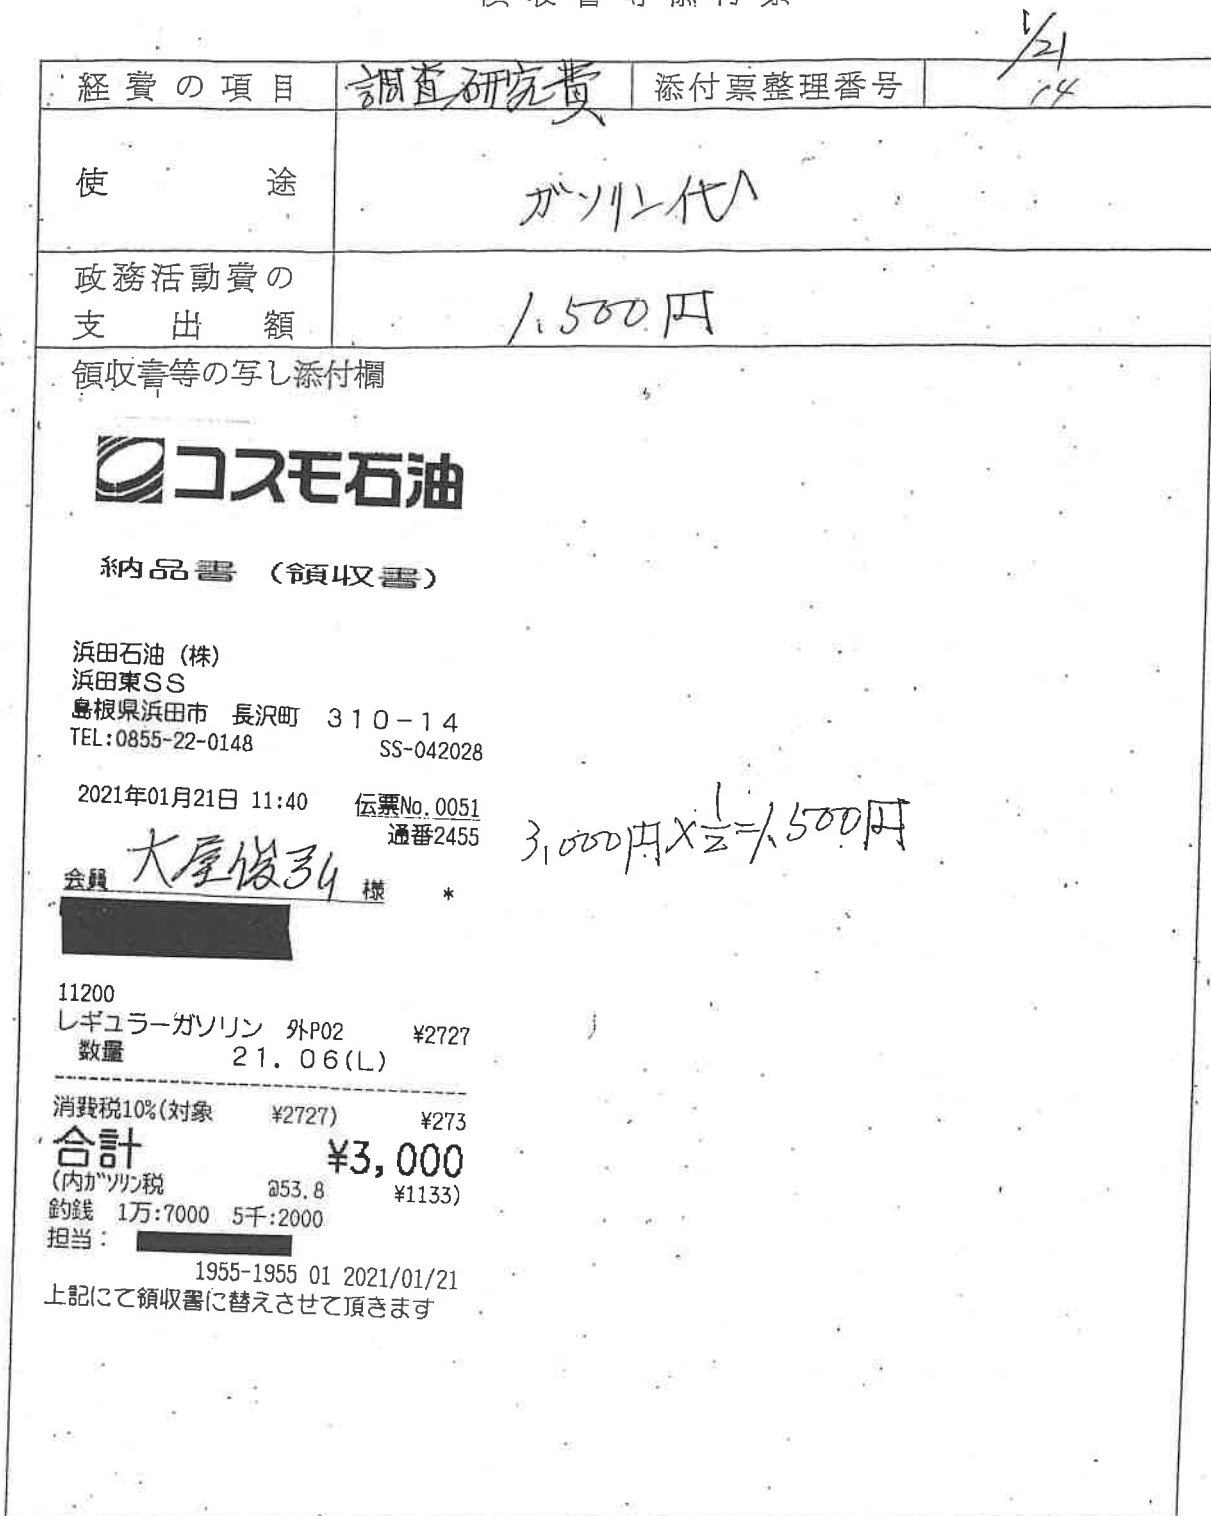 領収書等添付票
1/21
経費の項目 調査研究費 添付票整理番号 14
使途 ガソリン代
政務活動費の
支出額 1,500円
領収書等の写し添付欄
コスモ石油
納品書（領収書）
浜田石油（株）
浜田東SS
島根県浜田市　長沢町　310-14
TEL:0855-22-0148 SS-042028
2021年01月21日 11:40 伝票No.0051
通番2455
3,000円×1/2=1,500円
会員 大屋俊弘 様 *
11200
レギュラーガソリン 外P02 ¥2727
数量 21.06(L)
消費税10%(対象 ¥2727) ¥273
合計 ¥3,000
(内ガソリン税 @53.8 ¥1133)
釣銭 1万:7000 5千:2000
担当:
1955-1955 01 2021/01/21
上記にて領収書に替えさせて頂きます